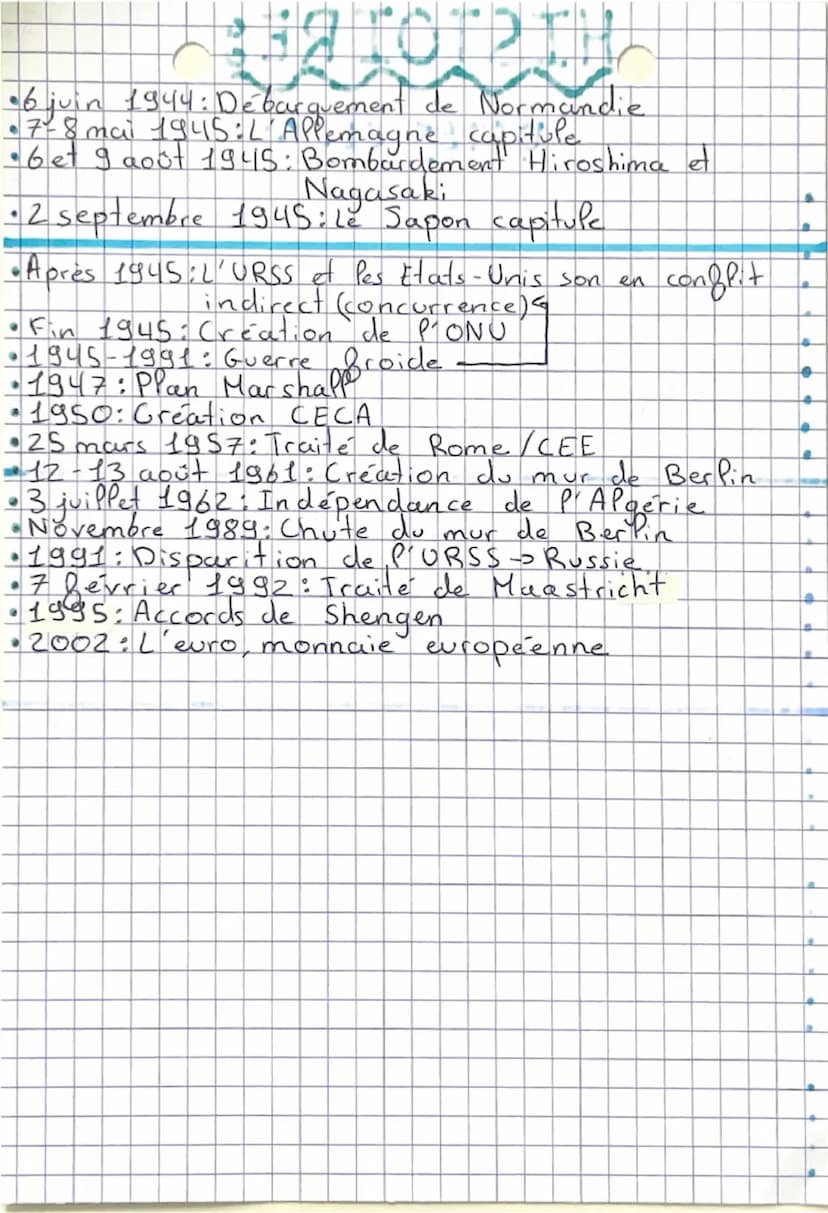 HISTOIRE:
•6 juin 1944: Débarquement de Normandie
•7-8 mai 1945: L'Allemagne capitule
•6 et 9 août 1945: Bombardement Hiroshima et
Nagasaki
•2 septembre 1945: Le Japon capitule
•Après 1945: L'URSS et les Etats-Unis son en conflit
indirect (concurrence)
•Fin 1945: Création de l'ONU
•1945-1991: Guerre froide
•1947: Plan Marshall
•1950: Création CECA
•25 mars 1957: Traité de Rome/CEE
•12-13 août 1961: Création du mur de Berlin
•3 juillet 1962: Indépendance de l'Algérie
•Novembre 1989: Chute du mur de Berlin
•1991: Disparition de l'URSS → Russie
•7 février 1992: Traité de Maastricht
•1995: Accords de Shengen
•2002: L'euro, monnaie européenne